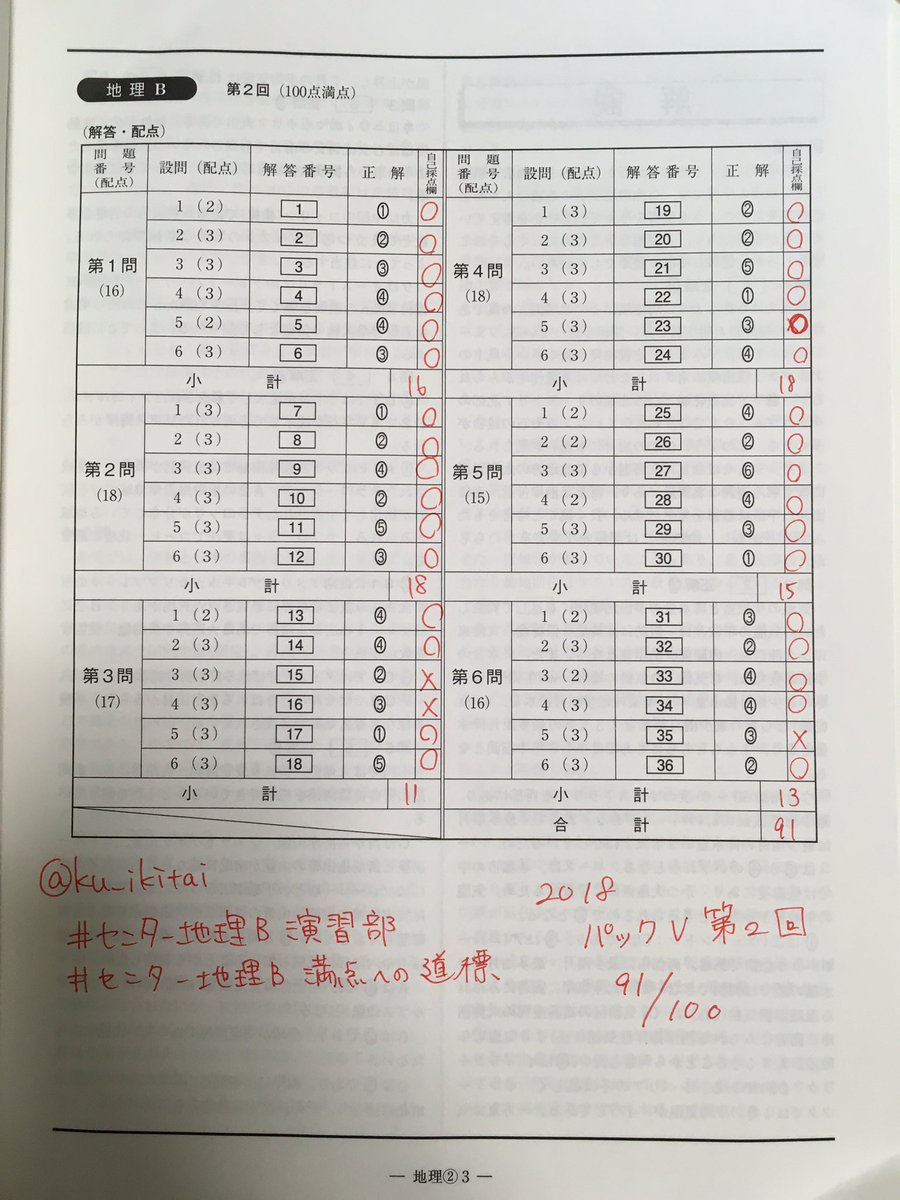 地理B 第2回 (100点満点)
(解答・配点)
問題番号(配点) 設問(配点) 解答番号 正解 自己採点欄
第1問 (16)
1 (2) 1 ① ○
2 (3) 2 ② ○
3 (3) 3 ③ ○
4 (3) 4 ④ ○
5 (2) 5 ④ ○
6 (3) 6 ③ ○
小計 16
第2問 (18)
1 (3) 7 ① ○
2 (3) 8 ② ○
3 (3) 9 ④ ○
4 (3) 10 ② ○
5 (3) 11 ⑤ ○
6 (3) 12 ③ ○
小計 18
第3問 (17)
1 (2) 13 ④ ○
2 (3) 14 ④ ○
3 (3) 15 ② ×
4 (3) 16 ③ ×
5 (3) 17 ① ○
6 (3) 18 ⑤ ○
小計 11
問題番号(配点) 設問(配点) 解答番号 正解 自己採点欄
第4問 (18)
1 (3) 19 ② ○
2 (3) 20 ② ○
3 (3) 21 ⑤ ○
4 (3) 22 ① ○
5 (3) 23 ③ ○
6 (3) 24 ④ ○
小計 18
第5問 (15)
1 (2) 25 ④ ○
2 (2) 26 ② ○
3 (3) 27 ⑥ ○
4 (2) 28 ④ ○
5 (3) 29 ③ ○
6 (3) 30 ① ○
小計 15
第6問 (16)
1 (2) 31 ③ ○
2 (3) 32 ② ○
3 (3) 33 ④ ○
4 (3) 34 ④ ○
5 (3) 35 ③ ×
6 (3) 36 ② ○
小計 13
合計 91
@ku_ikitai
#センター地理B演習部
#センター地理B満点への道標、
2018
パックV 第2回
91/100
— 地理② 3 —